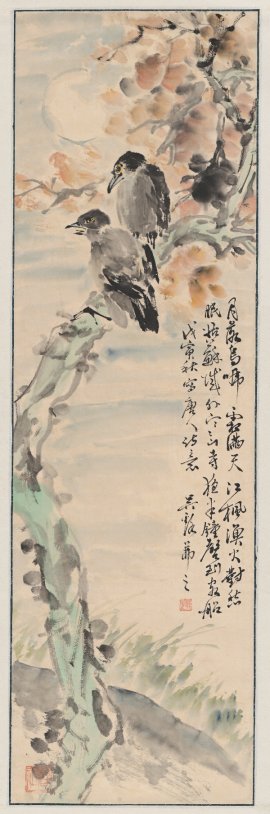 月落烏啼霜滿天江楓漁火對愁
眠姑蘇城外寒山寺夜半鐘聲到客船
戊寅秋寫唐人詩意 吳